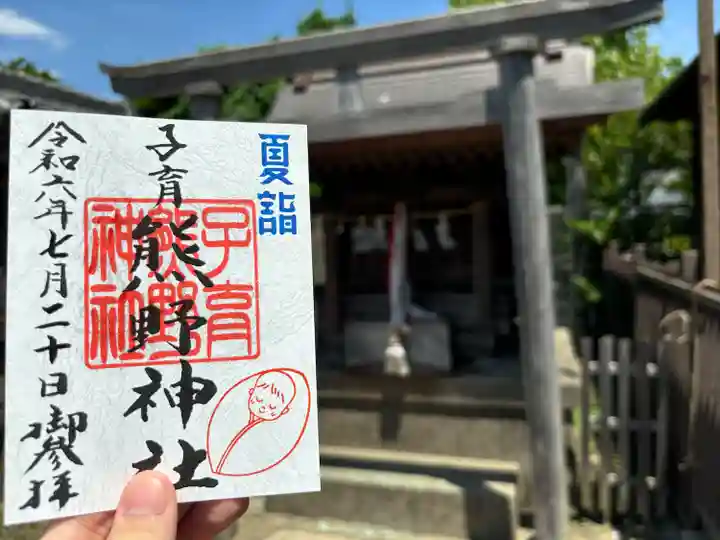 夏詣
子育
熊野神社
子育
熊野
神社
令和六年七月二十日 御參拝